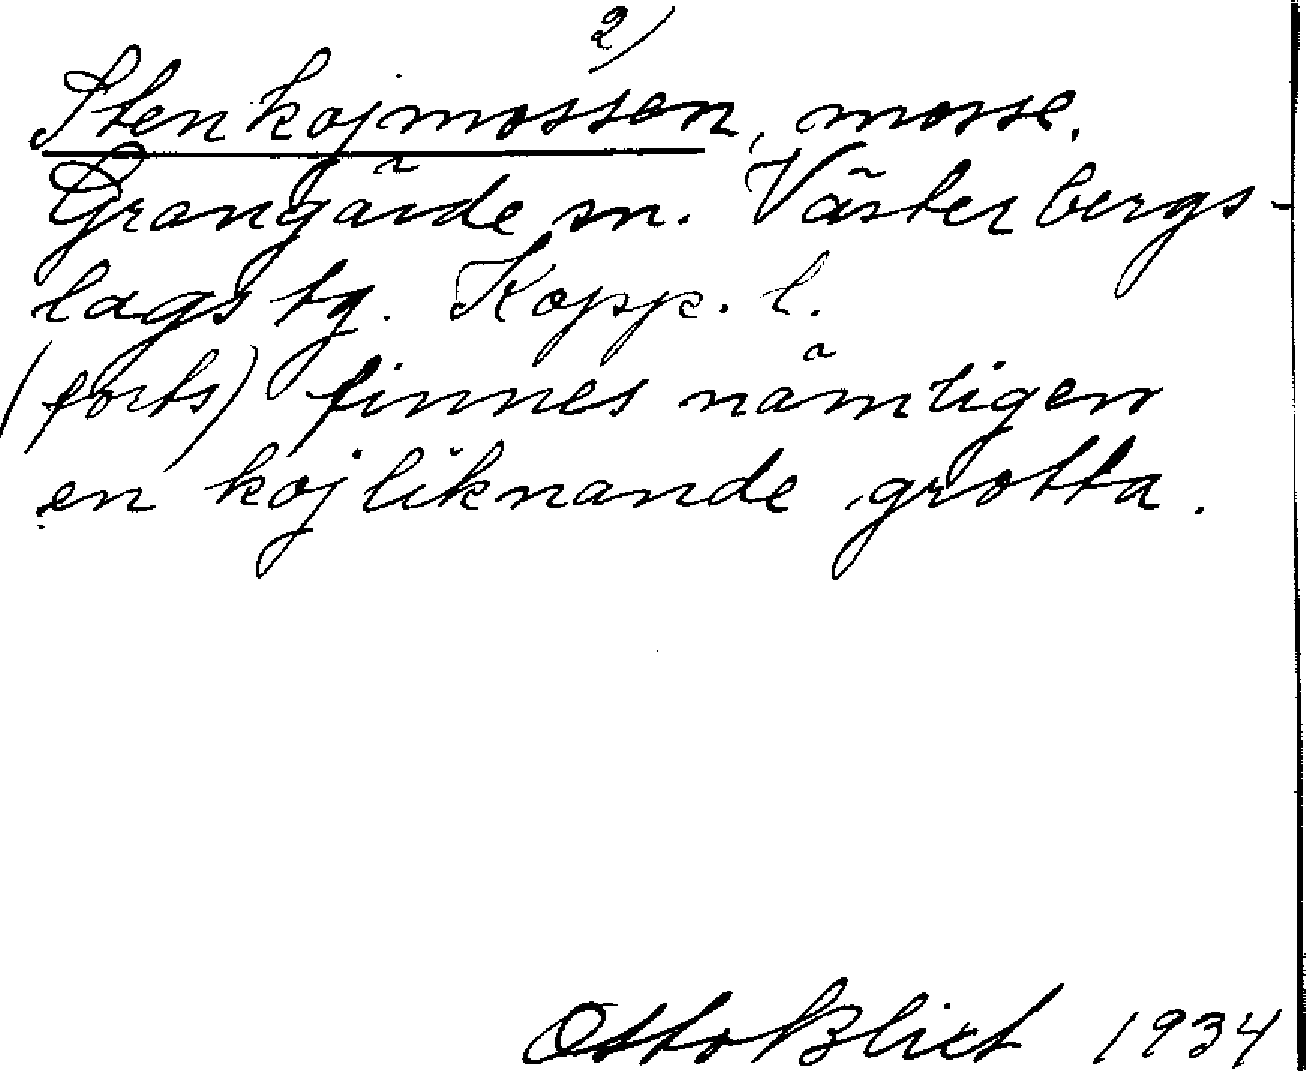 2)
Stenkojmossen, mosse.
Grangärde sn. Västerbergs-
lags tg. Kopp. l.
(forts) finnes nämligen
en kojliknande grotta.
Otto Blixt 1934